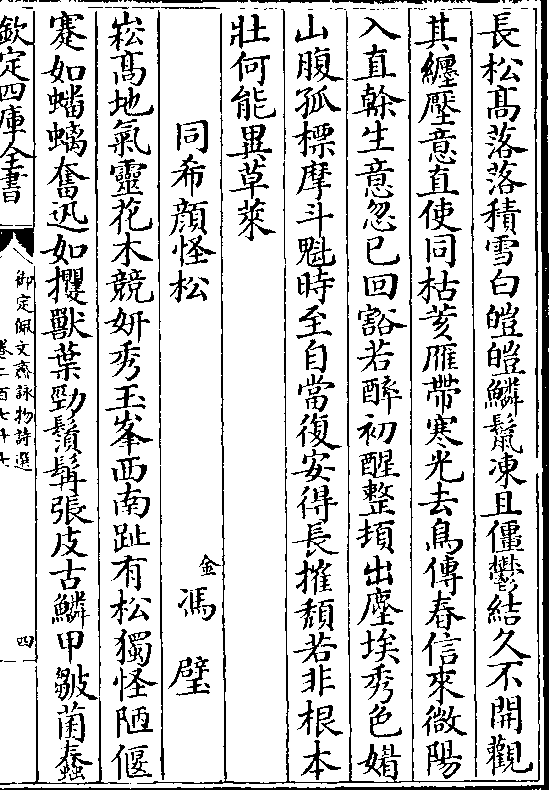 長松髙落落積雪白皚皚鱗鬛凍且僵鬱結久不開觀
其纒壓意直使同枯荄雁帶寒光去鳥傳春信來微陽
入直榦生意忽已回豁若醉初醒整頓出塵埃秀色媚
山腹孤標摩斗魁時至自當復安得長摧頽若非根本
壯何能異草萊
同希顔怪松
金馮璧
崧髙地氣靈花木競妍秀玉峯西南趾有松獨怪陋偃
蹇如蟠螭奮迅如攫獸葉勁鬚髯張皮古鱗甲皺菌蠢
欽定四庫全書
御定佩文齋詠物詩選
卷二百七十七
四